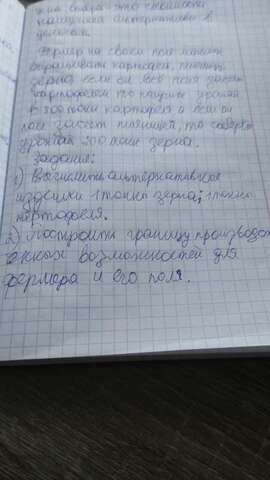 это стоимость
альтернативы в
Фермер на своем поле может
выращивать картофель, пшеницу
зерно если он все поле засеет
картофелем то получит урожай
в 300 тонн картофеля а если он
поле засеет пшеницей, то соберет
урожай 200 тонн зерна.
Задание:
1) Вычислить альтернативные
издержки 1 тонны зерна; 1 тонны
картофеля.
2) Построить границу производст-
венных возможностей для
фермера и его поля.